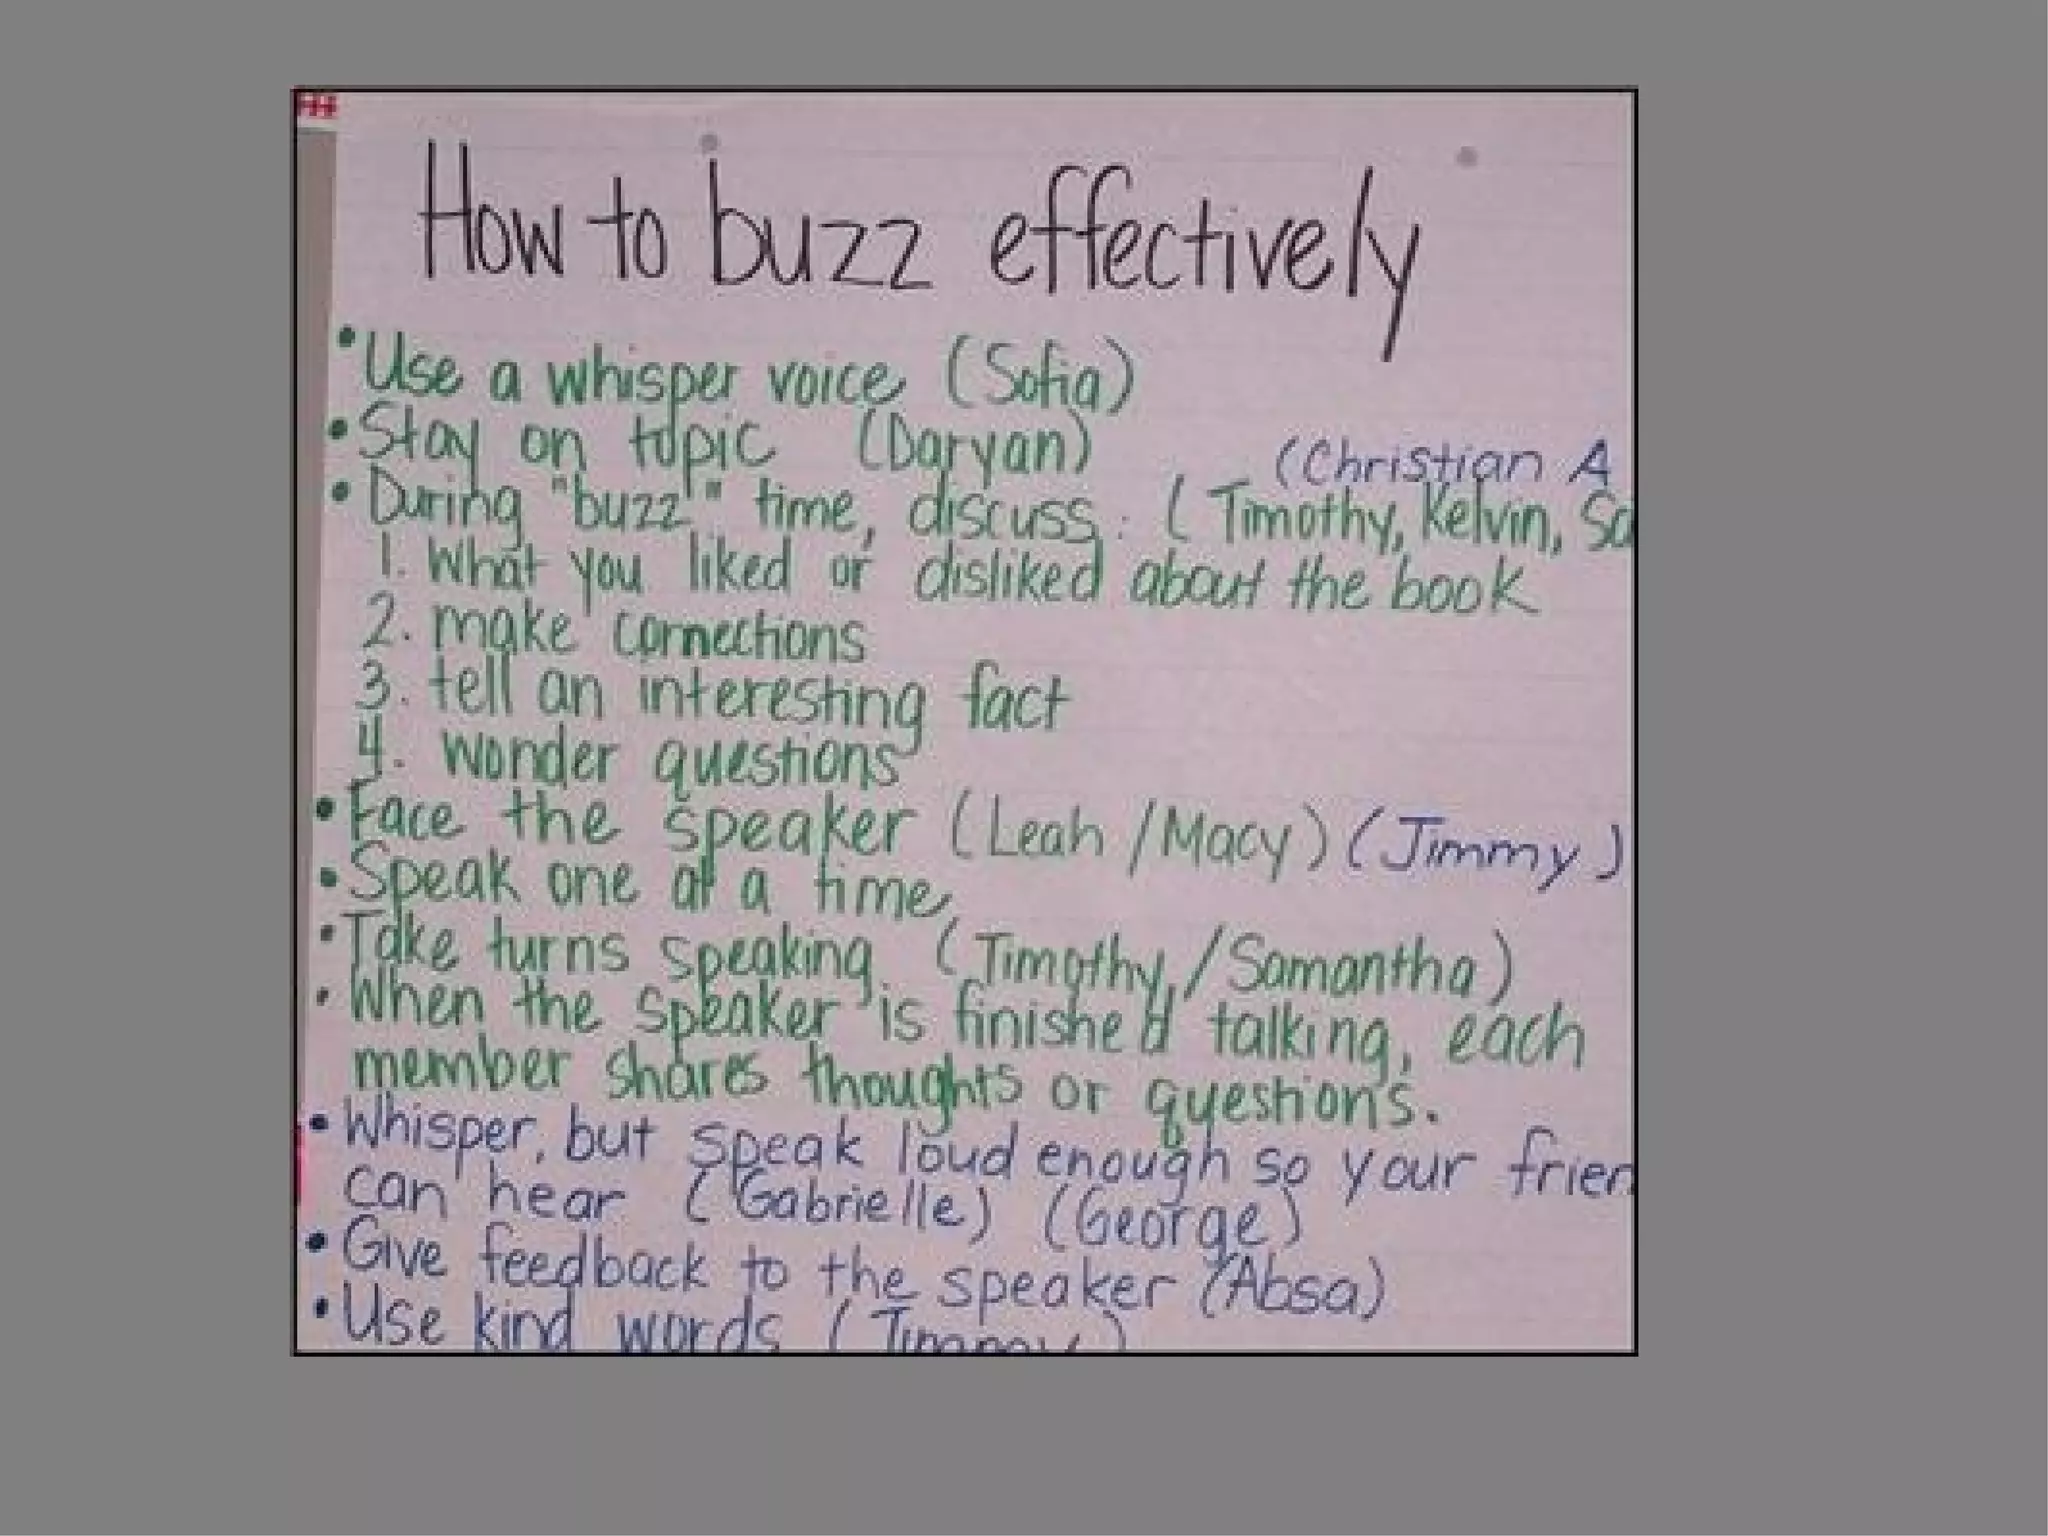 How to buzz effectively
• Use a whisper voice (Sofia)
• Stay on topic (Daryan)
(Christian A
• During "buzz" time, discuss: (Timothy, Kelvin, Sa
1. What you liked or disliked about the book
2. make connections
3. tell an interesting fact
4. wonder questions
• Face the speaker (Leah/Macy) (Jimmy)
• Speak one at a time
• Take turns speaking (Timothy/Samantha)
• When the speaker is finished talking, each
member shares thoughts or questions.
• Whisper, but speak loud enough so your frien
can hear (Gabrielle) (George)
• Give feedback to the speaker (Absa)
• Use kind words (Timmy)